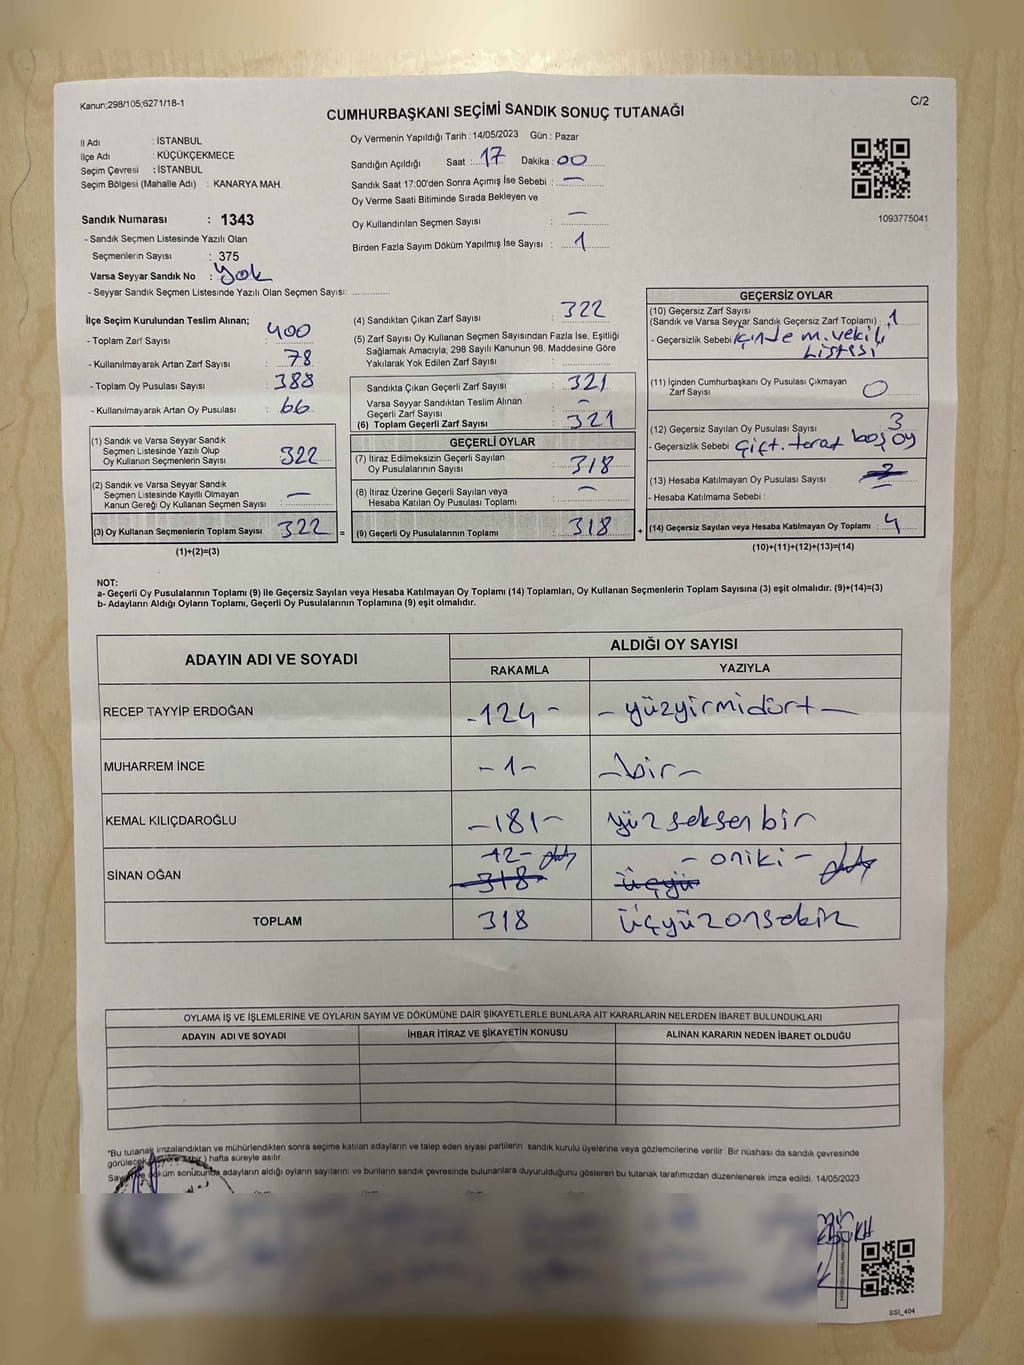 Kanun;298/105;6271/18-1
C/2
CUMHURBAŞKANI SEÇİMİ SANDIK SONUÇ TUTANAĞI
İl Adı : İSTANBUL
İlçe Adı : KÜÇÜKÇEKMECE
Seçim Çevresi : İSTANBUL
Seçim Bölgesi (Mahalle Adı) : KANARYA MAH.
Sandık Numarası : 1343
- Sandık Seçmen Listesinde Yazılı Olan
Seçmenlerin Sayısı : 375
Varsa Seyyar Sandık No : Yok
- Seyyar Sandık Seçmen Listesinde Yazılı Olan Seçmen Sayısı: ..............
Oy Vermenin Yapıldığı Tarih : 14/05/2023 Gün : Pazar
Sandığın Açıldığı Saat : 17 Dakika : 00
Sandık Saat 17:00'den Sonra Açımış İse Sebebi : —
Oy Verme Saati Bitiminde Sırada Bekleyen ve
Oy Kullandırılan Seçmen Sayısı : —
Birden Fazla Sayım Döküm Yapılmış İse Sayısı : 1
1093775041
İlçe Seçim Kurulundan Teslim Alınan;
- Toplam Zarf Sayısı : 400
- Kullanılmayarak Artan Zarf Sayısı : 78
- Toplam Oy Pusulası Sayısı : 388
- Kullanılmayarak Artan Oy Pusulası : 66
(1) Sandık ve Varsa Seyyar Sandık
Seçmen Listesinde Yazılı Olup
Oy Kullanan Seçmenlerin Sayısı : 322
(2) Sandık ve Varsa Seyyar Sandık
Seçmen Listesinde Kayıtlı Olmayan
Kanun Gereği Oy Kullanan Seçmen Sayısı : —
(3) Oy Kullanan Seçmenlerin Toplam Sayısı : 322 =
(1)+(2)=(3)
(4) Sandıktan Çıkan Zarf Sayısı : 322
(5) Zarf Sayısı Oy Kullanan Seçmen Sayısından Fazla İse, Eşitliği
Sağlamak Amacıyla; 298 Sayılı Kanunun 98. Maddesine Göre
Yakılarak Yok Edilen Zarf Sayısı :
Sandıkta Çıkan Geçerli Zarf Sayısı : 321
Varsa Seyyar Sandıktan Teslim Alınan
Geçerli Zarf Sayısı : —
(6) Toplam Geçerli Zarf Sayısı : 321
GEÇERLİ OYLAR
(7) İtiraz Edilmeksizin Geçerli Sayılan
Oy Pusulalarının Sayısı : 318
(8) İtiraz Üzerine Geçerli Sayılan veya
Hesaba Katılan Oy Pusulası Toplamı : —
(9) Geçerli Oy Pusulalarının Toplamı : 318 +
GEÇERSİZ OYLAR
(10) Geçersiz Zarf Sayısı
(Sandık ve Varsa Seyyar Sandık Geçersiz Zarf Toplamı) : 1
- Geçersizlik Sebebi : içinde m.vekili
Listesi
(11) İçinden Cumhurbaşkanı Oy Pusulası Çıkmayan
Zarf Sayısı : 0
(12) Geçersiz Sayılan Oy Pusulası Sayısı : 3
- Geçersizlik Sebebi : Çift. taraf boş oy
(13) Hesaba Katılmayan Oy Pusulası Sayısı :
- Hesaba Katılmama Sebebi :
(14) Geçersiz Sayılan veya Hesaba Katılmayan Oy Toplamı : 4
(10)+(11)+(12)+(13)=(14)
NOT:
a- Geçerli Oy Pusulalarının Toplamı (9) ile Geçersiz Sayılan veya Hesaba Katılmayan Oy Toplamı (14) Toplamları, Oy Kullanan Seçmenlerin Toplam Sayısına (3) eşit olmalıdır. (9)+(14)=(3)
b- Adayların Aldığı Oyların Toplamı, Geçerli Oy Pusulalarının Toplamına (9) eşit olmalıdır.
ADAYIN ADI VE SOYADI
ALDIĞI OY SAYISI
RAKAMLA YAZIYLA
RECEP TAYYİP ERDOĞAN -124- - yüzyirmidört -
MUHARREM İNCE -1- -bir-
KEMAL KILIÇDAROĞLU -181- yüzseksenbir
SİNAN OĞAN 12- - oniki -
318 üçyü
TOPLAM 318 üçyüzonsekiz
OYLAMA İŞ VE İŞLEMLERİNE VE OYLARIN SAYIM VE DÖKÜMÜNE DAİR ŞİKAYETLERLE BUNLARA AİT KARARLARIN NELERDEN İBARET BULUNDUKLARI
ADAYIN ADI VE SOYADI İHBAR İTİRAZ VE ŞİKAYETİN KONUSU ALINAN KARARIN NEDEN İBARET OLDUĞU
*Bu tutanak imzalandıktan ve mühürlendikten sonra seçime katılan adayların ve talep eden siyasi partilerin sandık kurulu üyelerine veya gözlemcilerine verilir. Bir nüshası da sandık çevresinde
görülecek bir ) hafta süreyle asılır.
döküm sonucunda adayların aldığı oyların sayılarını ve bunların sandık çevresinde bulunanlara duyurulduğunu gösteren bu tutanak tarafımızdan düzenlenerek imza edildi. 14/05/2023
SSI_404